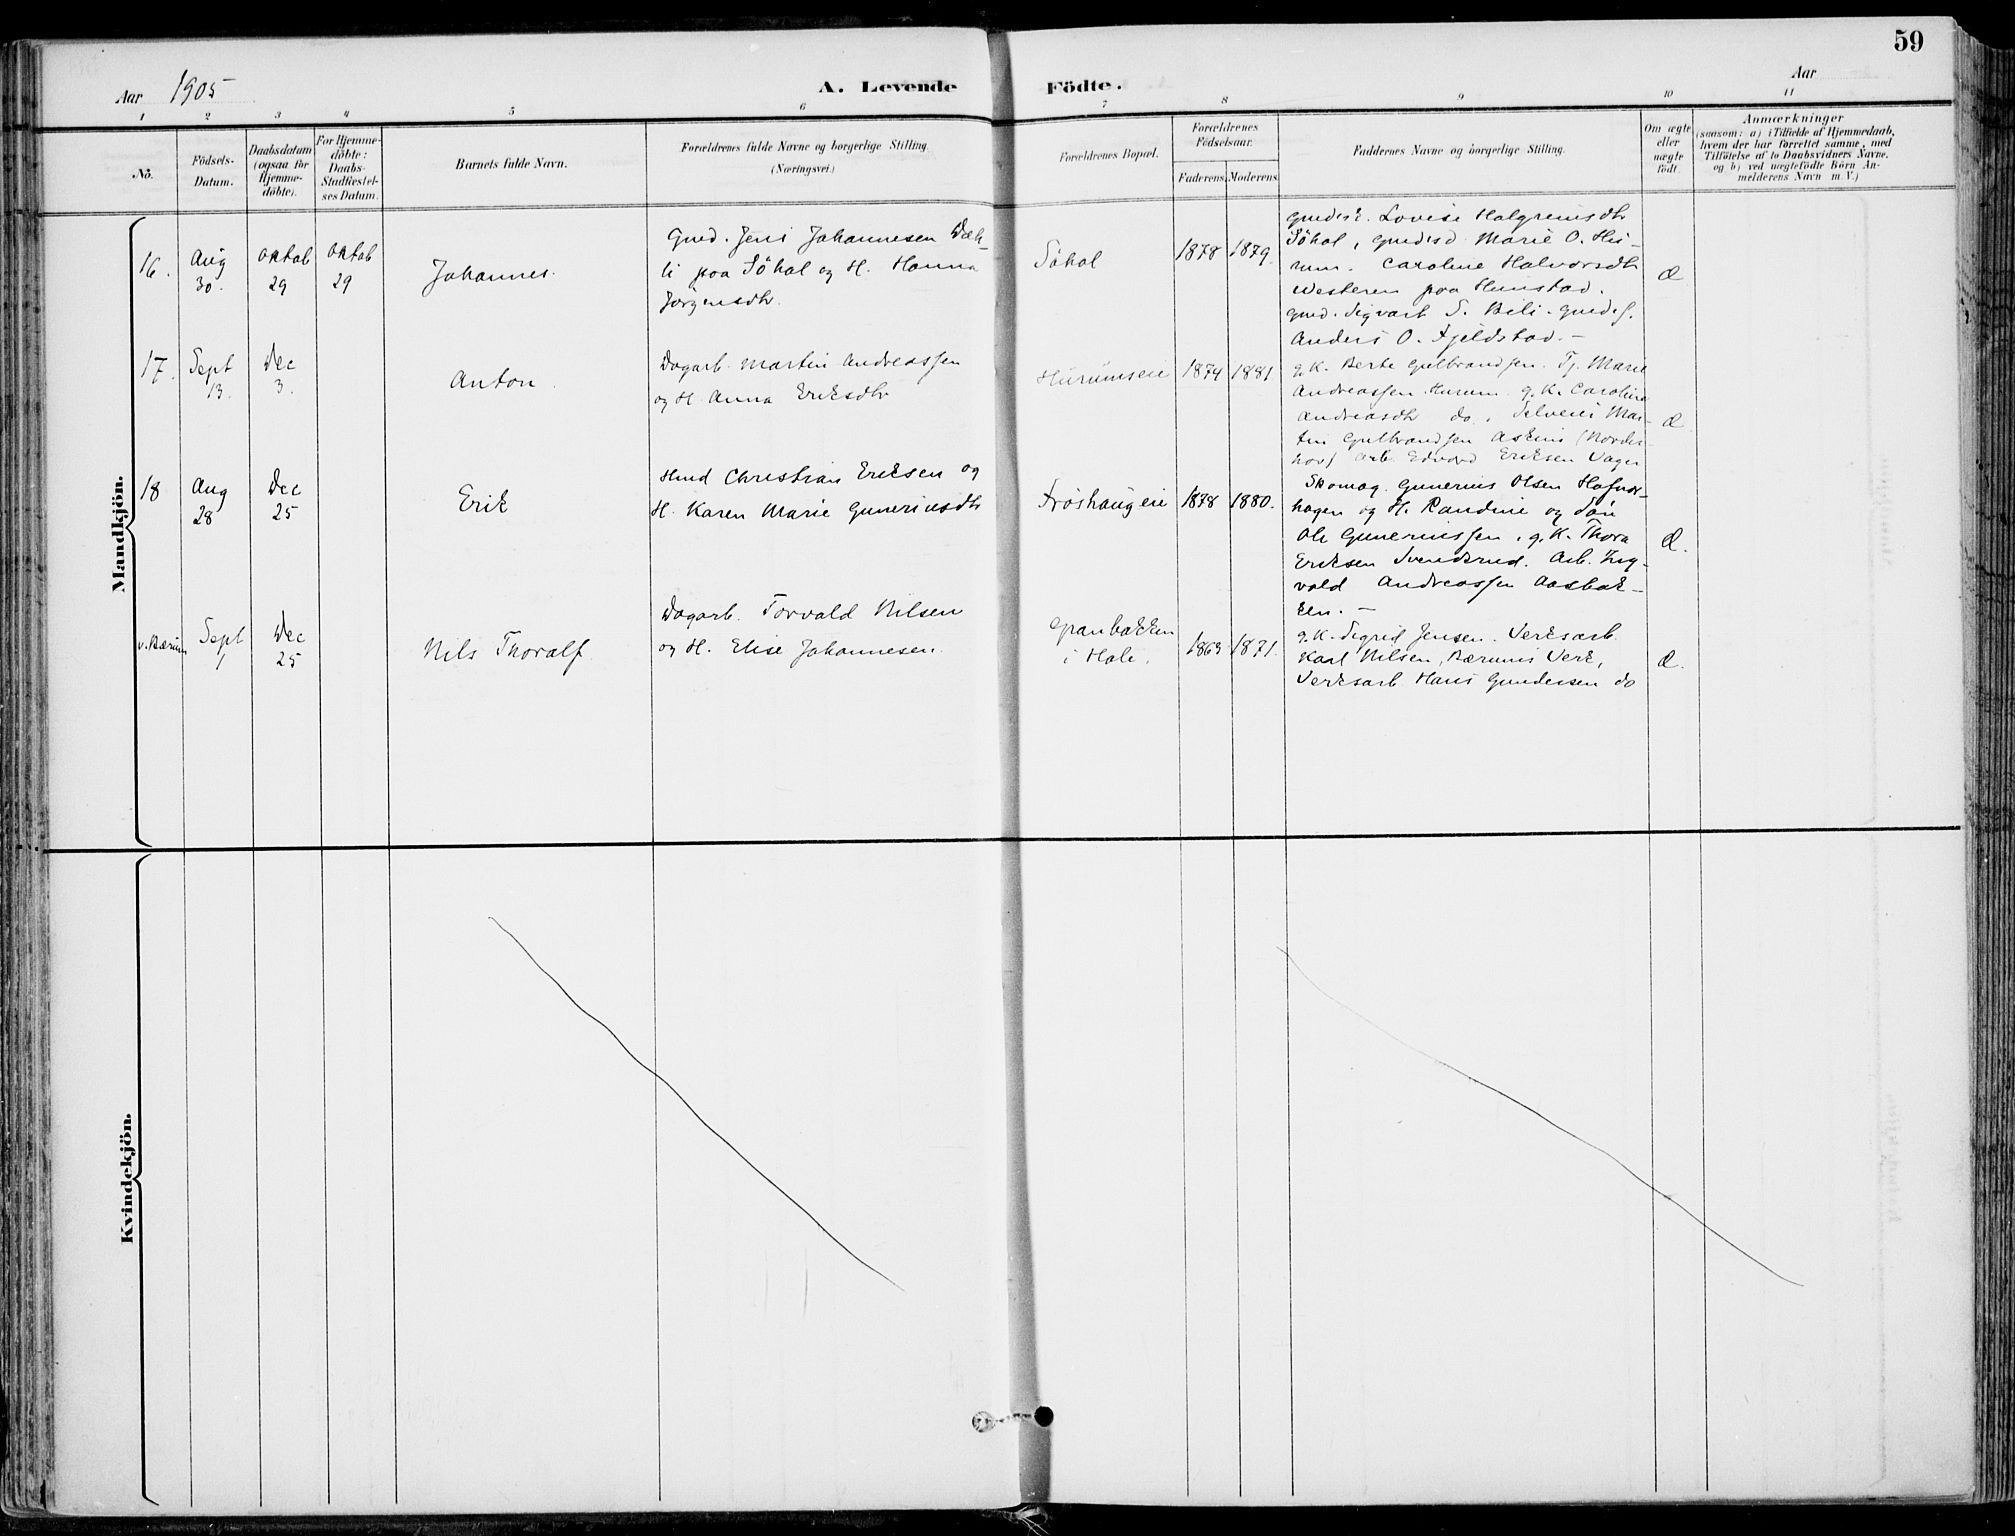 59
Aar 1905
A. Levende Födte.
Aar
1 2 3 4 5 6 7 8 9 10 11
No.
Födsels-
Datum.
Daabsdatum
(ogsaa for
Hjemme-
döbte).
For Hjemme-
döbte:
Daabs-
Stadfæstel-
ses Datum.
Barnets fulde Navn.
Forældrenes fulde Navne og borgerlige Stilling.
(Næringsvei.)
Forældrenes Bopæl.
Forældrenes
Födselsaar.
Faderens. Moderens.
Faddernes Navne og borgerlige Stilling.
Om ægte
eller
uægte
født.
Anmærkninger
(saasom: a) i Tilfælde af Hjemmedaab,
hvem der har forrettet samme, med
Tilföielse af to Daabsvidners Navne,
og b) ved uægtefödte Börn An-
melderens Navn m. V.)
Mandkjön.
16.
Aug
30.
Oktob
29
Oktob
29
Johannes.
Gmd. Jens Johannesen Dæh-
li paa Söhol og H. Hanna
Jörgensdtr.
Söhol
1878 1879.
gmdsk. Lovise Halgrimsdtr
Söhol, gmdsd. Marie O. Hu-
rum. Caroline Halvorsdtr
Westeren paa Hunstad.
gmd. Sigvart S. Bili. gmds.
Anders O. Fjeldstad. —
Æ
17.
Sept
13.
Dec
3.
Anton.
Dagarb. Martin Andreassen
og H. Anna Eriksdtr
Hurumseie
1874 1881
g. K. Berte Gulbrandsen. Tj. Marie
Andreassen Hurum. g. K. Caroline
Andreasdtr do. Selveier Mar-
tin Gulbrandsen Askins (Norder-
hov) arb. Edvard Eriksen Vager
Æ
18
Aug
28
Dec
25
Erik
Hmd Christian Eriksen og
H. Karen Marie Gunerinsdtr
Fröshaugeie
1878 1880.
Skomag. Gunerius Olsen Hafnor-
hagen og H. Randine og Sön
Ole Guneriussen, g. K. Thora
Eriksen Svendsrud. Arb. Ing-
vald Andreassen Aasbak-
ken. —
Æ.
v. Bærum
Sept
1
Dec
25
Nils Thoralf
Dagarb. Torvald Nilsen
og H. Elise Johannesen.
Granbakken
i Hole.
1869 1871.
g. K. Sigrid Jensen. Verksarb.
Karl Nilsen, Bærums Verk,
Verksarb. Hans Gundersen do
Æ.
Kvindekjön.